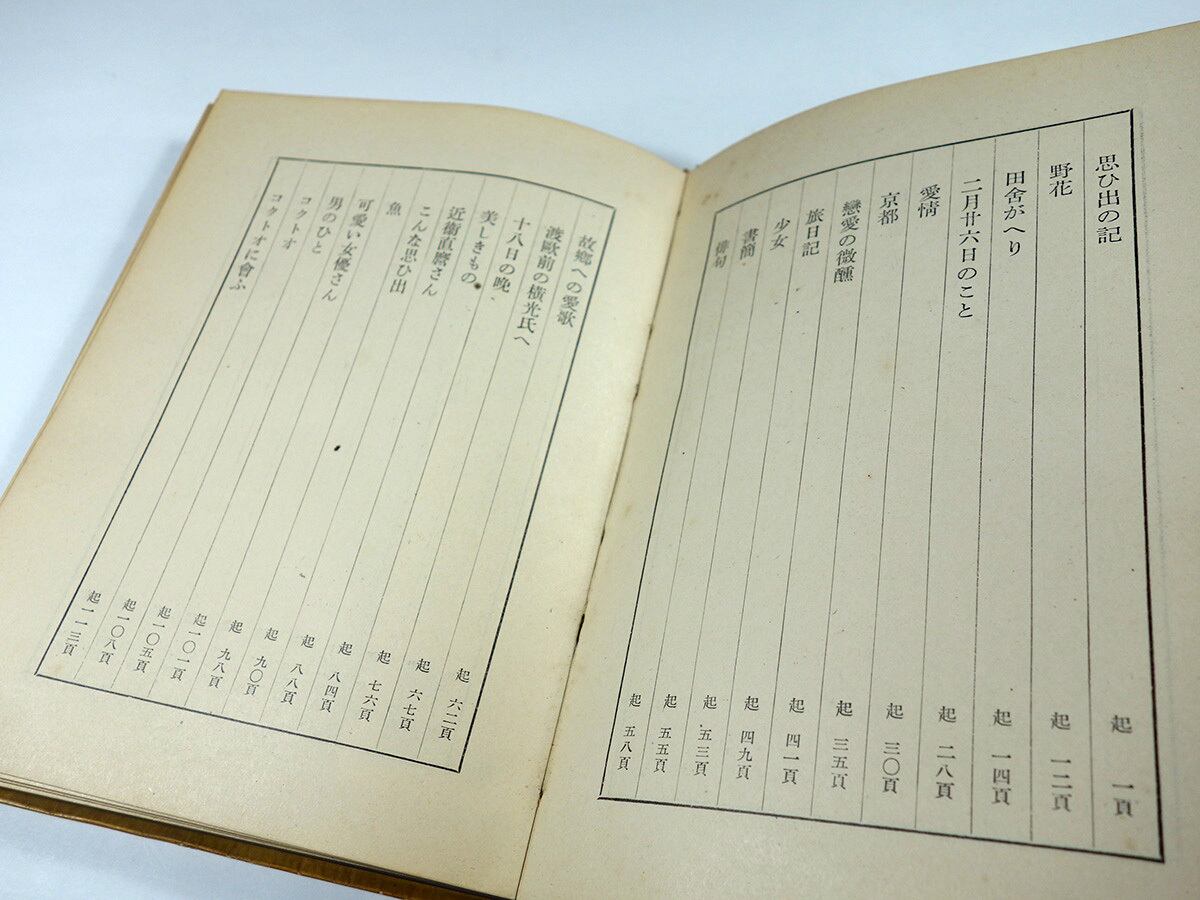 思ひ出の記 起 一頁
野花 起 一二頁
田舍がへり 起 一四頁
二月廿六日のこと 起 二八頁
愛情 起 三〇頁
京都 起 三五頁
戀愛の微醺 起 四一頁
旅日記 起 四九頁
少女 起 五三頁
書簡 起 五五頁
俳句 起 五八頁
故鄕への愛歌 起 六二頁
渡歐前の横光氏へ 起 六七頁
十八日の晩 起 七六頁
美しきもの 起 八四頁
近衞直麿さん 起 八八頁
こんな思ひ出 起 九〇頁
魚 起 九八頁
可愛い女優さん 起一〇一頁
男のひと 起一〇五頁
コクトオ 起一〇八頁
コクトオに會ふ 起一一三頁